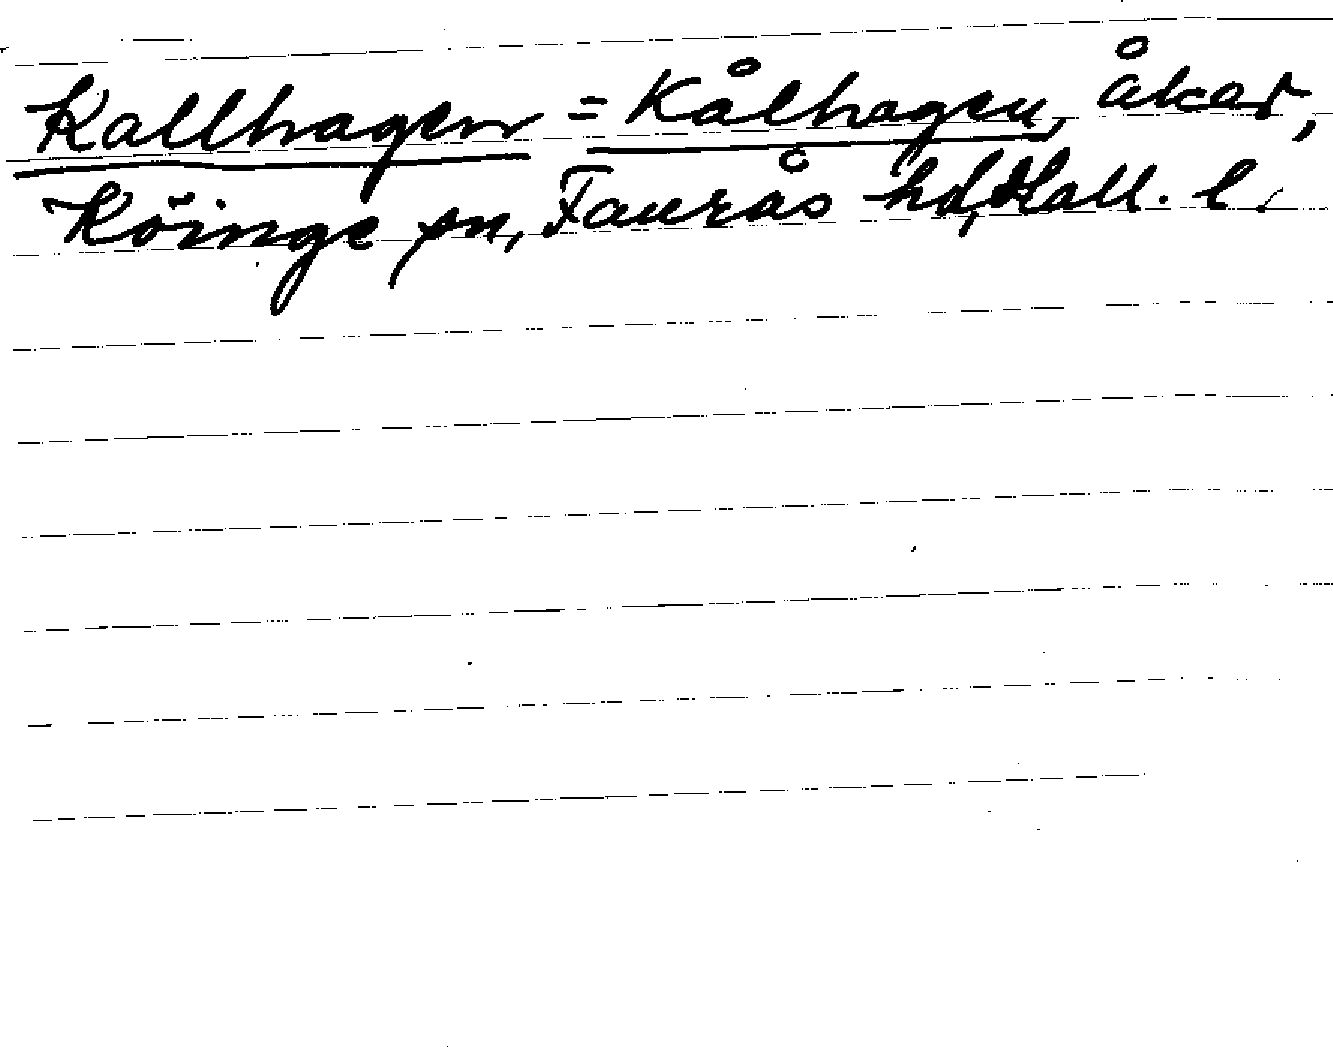 Kallhagen = Kålhagen, åker,
Köinge sn, Faurås hd, Hall. l.